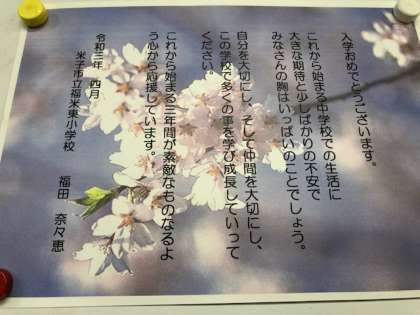 入学おめでとうございます。
これから始まる中学校での生活に
大きな期待と少しばかりの不安で
みなさんの胸はいっぱいのことでしょう。
自分を大切にし、そして仲間を大切にし、
この学校で多くの事を学び成長していって
ください。
これから始まる三年間が素敵なものなるよ
う心から応援しています。
令和三年　四月
米子市立福米東小学校
福田　奈々恵